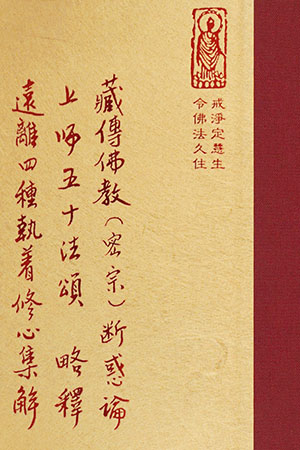 戒淨定慧生
令佛法久住
藏傳佛教(密宗)断惑論
上师五十法頌 略釋
遠離四種執着修心集解